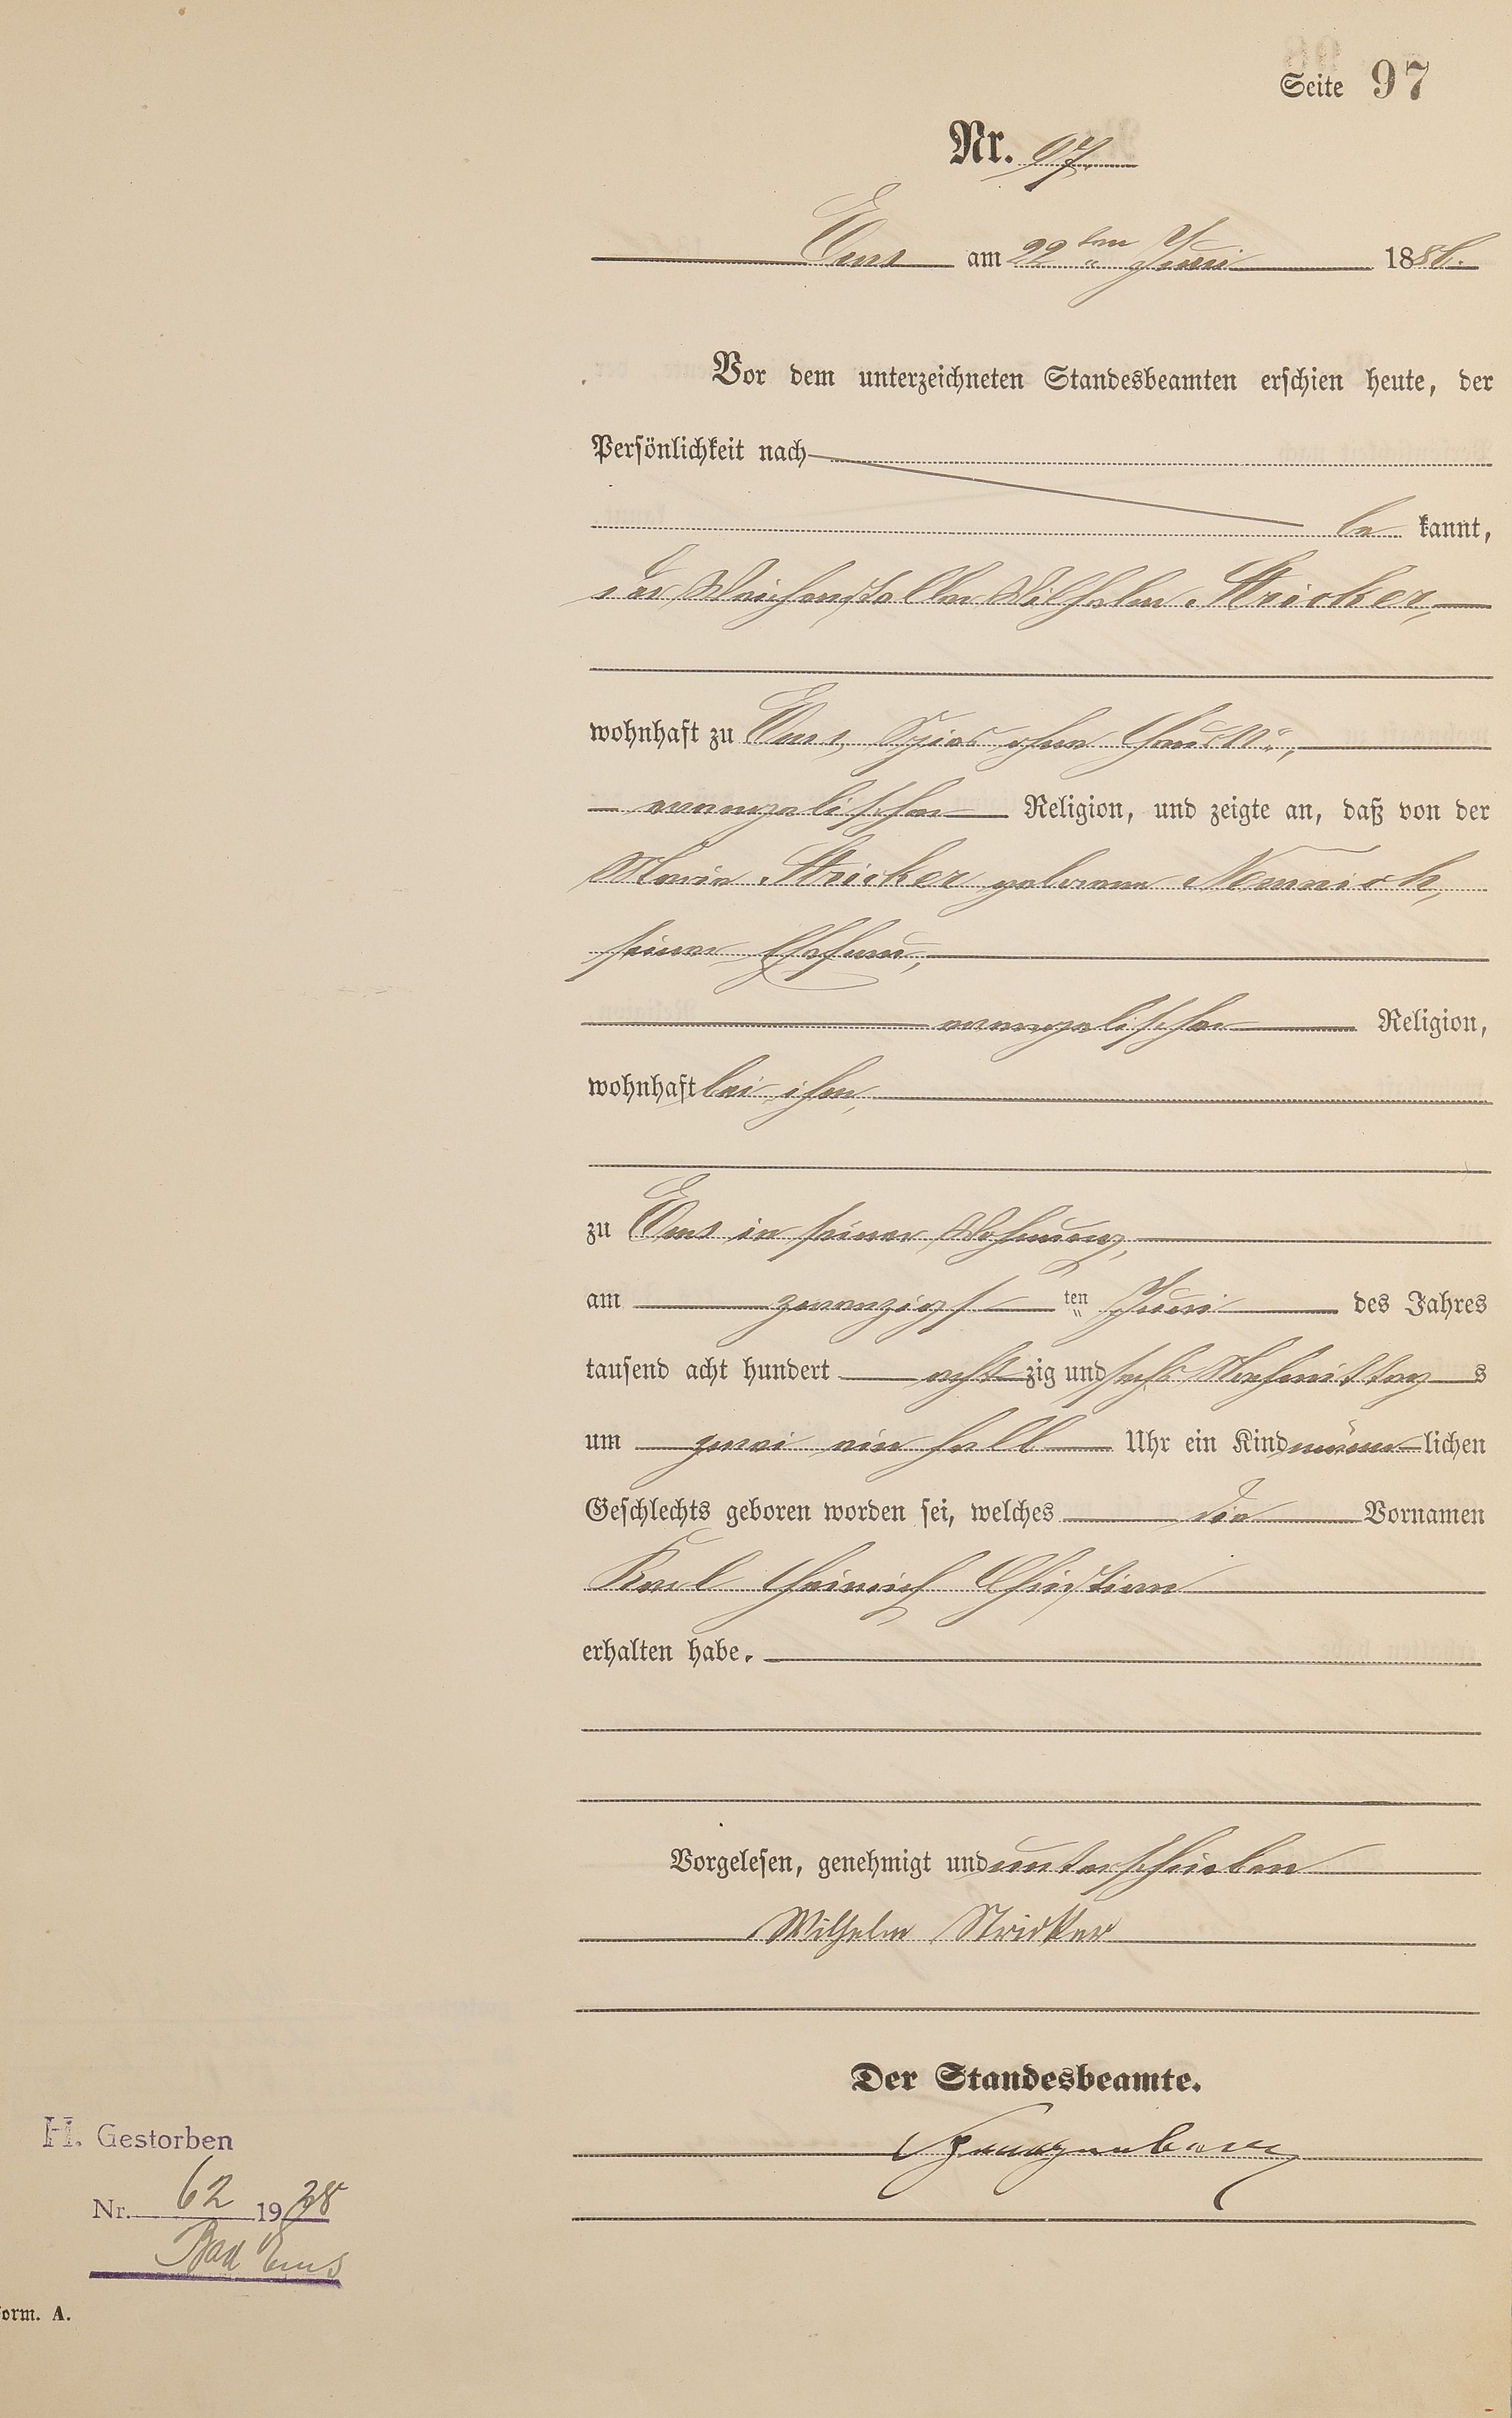 Seite 97
Nr. 97.
Ems am 22ten Juni 1886.
Vor dem unterzeichneten Standesbeamten erschien heute, der
Persönlichkeit nach
be kannt,
der Weichensteller Wilhelm Stricker,
wohnhaft zu Ems, Spies ohne Haus No,
evangelischer Religion, und zeigte an, daß von der
Maria Stricker geborene Nemnich,
seiner Ehefrau,
evangelischer Religion,
wohnhaft bei ihm,
zu Ems in seiner Wohnung,
am zwanzigsten Juni des Jahres
tausend acht hundert achtzig und sechs Nachmittags
um zwei ein halb Uhr ein Kind männlichen
Geschlechts geboren worden sei, welches die Vornamen
Karl Heinrich Christian
erhalten habe.
Vorgelesen, genehmigt und unterschrieben
Wilhelm Stricker
Der Standesbeamte.
H. Gestorben
Nr. 62 1938
Bad Ems
Form. A.